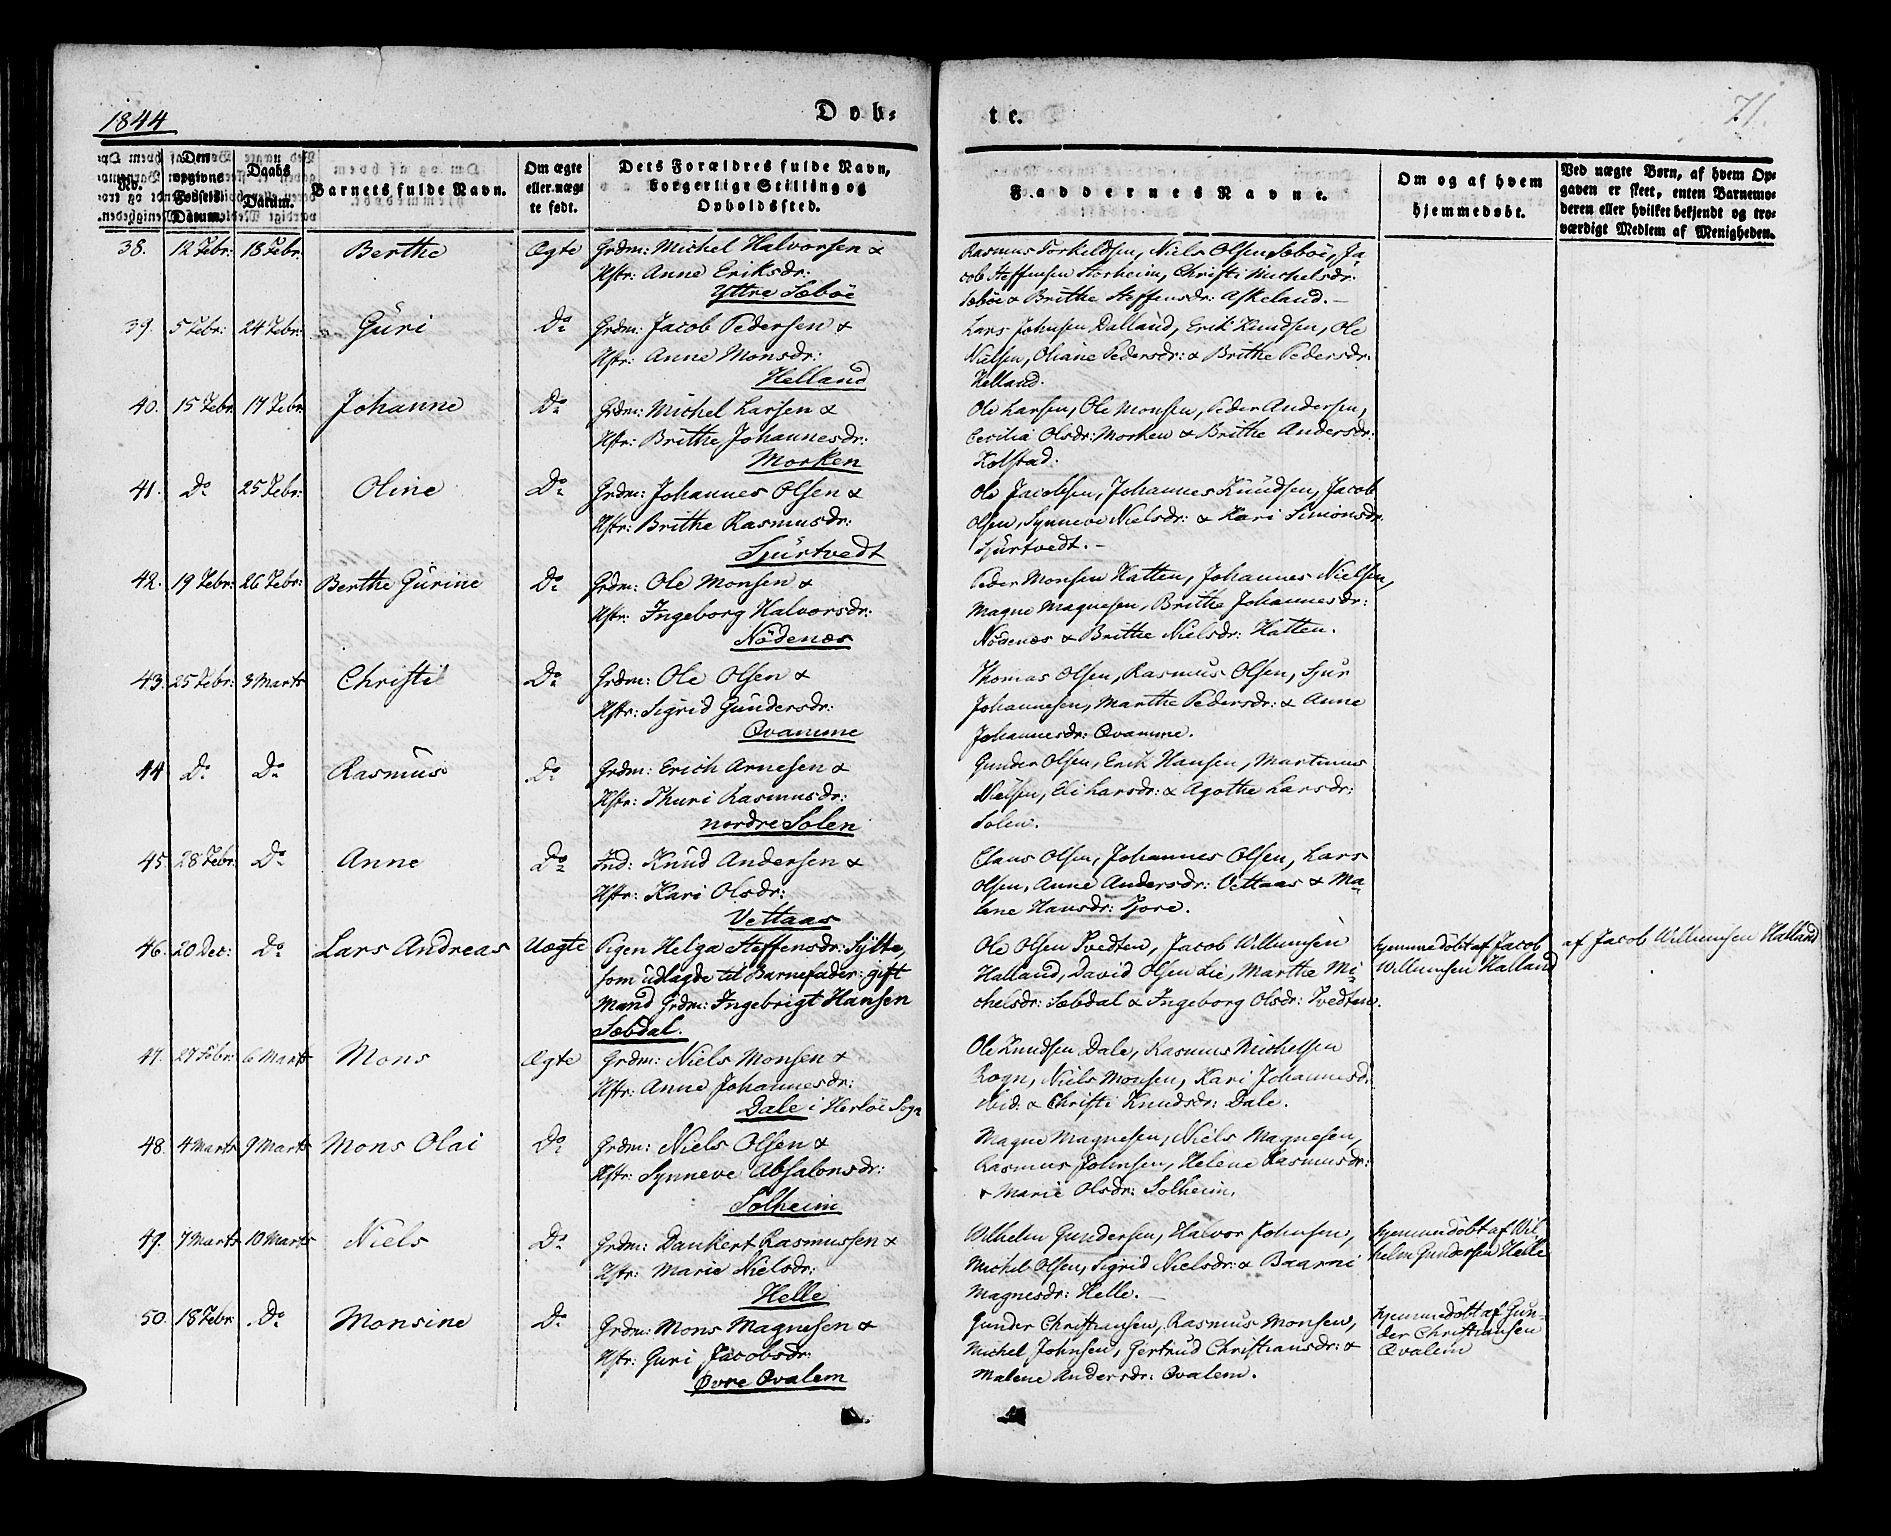 1844
Døb-
te.
71.
No.
Den opgivne Fødsels Datum.
Daabs Datum.
Barnets fulde Navn.
Om ægte eller uægte født.
Dets Forældres fulde Navn, borgerlige Stilling og Opholdssted.
Faddernes Navne.
Om og af hvem hjemmedøbt.
Ved uægte Børn, af hvem Opgaven er skeet, enten Barnemoderen eller hvilket bekjendt og troværdigt Medlem af Menigheden.
38. 12 Febr: 18 Febr: Berthe Ægte Grdm: Michel Halvorsen &
Hstr: Anne Eriksdr:
Yttre Sæböe
Rasmus Torkildsen, Niels Olsen Sæböe, Ja-
cob Steffensen Storheim, Christi Michelsdr:
Sæböe & Brithe Steffensdr: Askeland.
39. 5 Febr: 24 Febr: Guri Do Grdm: Jacob Pedersen &
Hstr: Anne Monsdr:
Helland
Lars Johnsen Dalland, Erik Knudsen, Ole
Nielsen, Oliane Pedersdr: & Brithe Pedersdr:
Helland.
40. 15 Febr. 17 Febr. Johanne Do Grdm: Michel Larsen &
Hstr: Brithe Johannesdr:
Morken
Ole Larsen, Ole Monsen, Peder Andersen,
Cecilia Olsdr: Morken & Brithe Andersdr:
Kolstad.
41. Do 25 Febr: Oline Do Grdm: Johannes Olsen &
Hstr: Brithe Rasmusdr:
Spurtvedt
Ole Jacobsen, Johannes Knudsen, Jacob
Olsen, Synneve Nielsdr: & Kari Simonsdr.
Spurtvedt.
42. 19 Febr: 26 Febr: Berthe Gurine Do Grdm: Ole Monsen &
Hstr: Ingeborg Halvorsdr:
Nödenæs
Peder Monsen Hatten, Johannes Nielsen,
Magne Magnesen, Brithe Johannesdr:
Nödenæs & Brithe Nielsdr: Hatten.
43. 25 Febr: 3 Marts Christi Do Grdm: Ole Olsen &
Hstr: Sigrid Gundersdr:
Qvamme
Thomas Olsen, Rasmus Olsen, Sjur
Johannesen, Marthe Pedersdr: & Anne
Johannesdr: Qvamme.
44 Do Do Rasmus Do Grdm: Erich Arnesen &
Hstr: Thuri Rasmusdr:
nordre Solen
Gunder Olsen, Erik Hansen, Martinus
Nielsen, Eli Larsdr: & Agothe Larsdr:
Solen.
45. 28 Febr: Do Anne Do Ind: Knud Andersen &
Hstr: Kari Olsdr:
Vettaas
Claus Olsen, Johannes Olsen, Lars
Olsen, Anne Andersdr: Vettaas & Ma-
lene Hansdr: Tjore.
46. 20 Dec: Do Lars Andreas Uægte Pigen Helga Steffensdr: Sylte,
som udlagde til Barnefader: gift
Mand Grdm: Ingebrigt Hansen
Sæbdal.
Ole Olsen Tvedten, Jacob Willumsen
Halland, David Olsen Lie, Marthe Mi-
chelsdr: Sæbdal & Ingeborg Olsdr: Tvedten.
hjemmedöbt af Jacob
Willumsen Halland
af Jacob Willumsen Halland
47. 27 Febr: 6 Marts Mons Ægte Grdm: Niels Monsen &
Hstr: Anne Johannesdr:
Dale i Herlöe Sogn
Ole Knudsen Dale, Rasmus Michelsen
Rogn, Niels Monsen, Kari Johannesdr
ibid: & Christi Knudsdr: Dale.
48. 4 Marts 9 Marts Mons Olai Do Grdm: Niels Olsen &
Hstr: Synneve Absalonsdr:
Solheim
Magne Magnesen, Niels Magnesen,
Rasmus Johnsen, Helene Rasmusdr:
& Marie Olsdr: Solheim.
49. 7 Marts 10 Marts Niels Do Grdm: Dankert Rasmussen &
Hstr: Marie Nielsdr:
Helle
Wilhelm Gundersen, Halvor Johnsen,
Michel Olsen, Sigrid Nielsdr: & Baarni
Magnesdr: Helle.
hjemmedöbt af Wil-
helm Gundersen Helle
50. 18 Febr: Do Monsine Do Grdm: Mons Magnesen &
Hstr: Guri Jacobsdr:
Övre Qvalem
Gunder Christiansen, Rasmus Monsen,
Michel Johnsen, Gertrud Christiansdr: &
Malene Andersdr: Qvalem.
hjemmedöbt af Gun-
der Christiansen
Qvalem